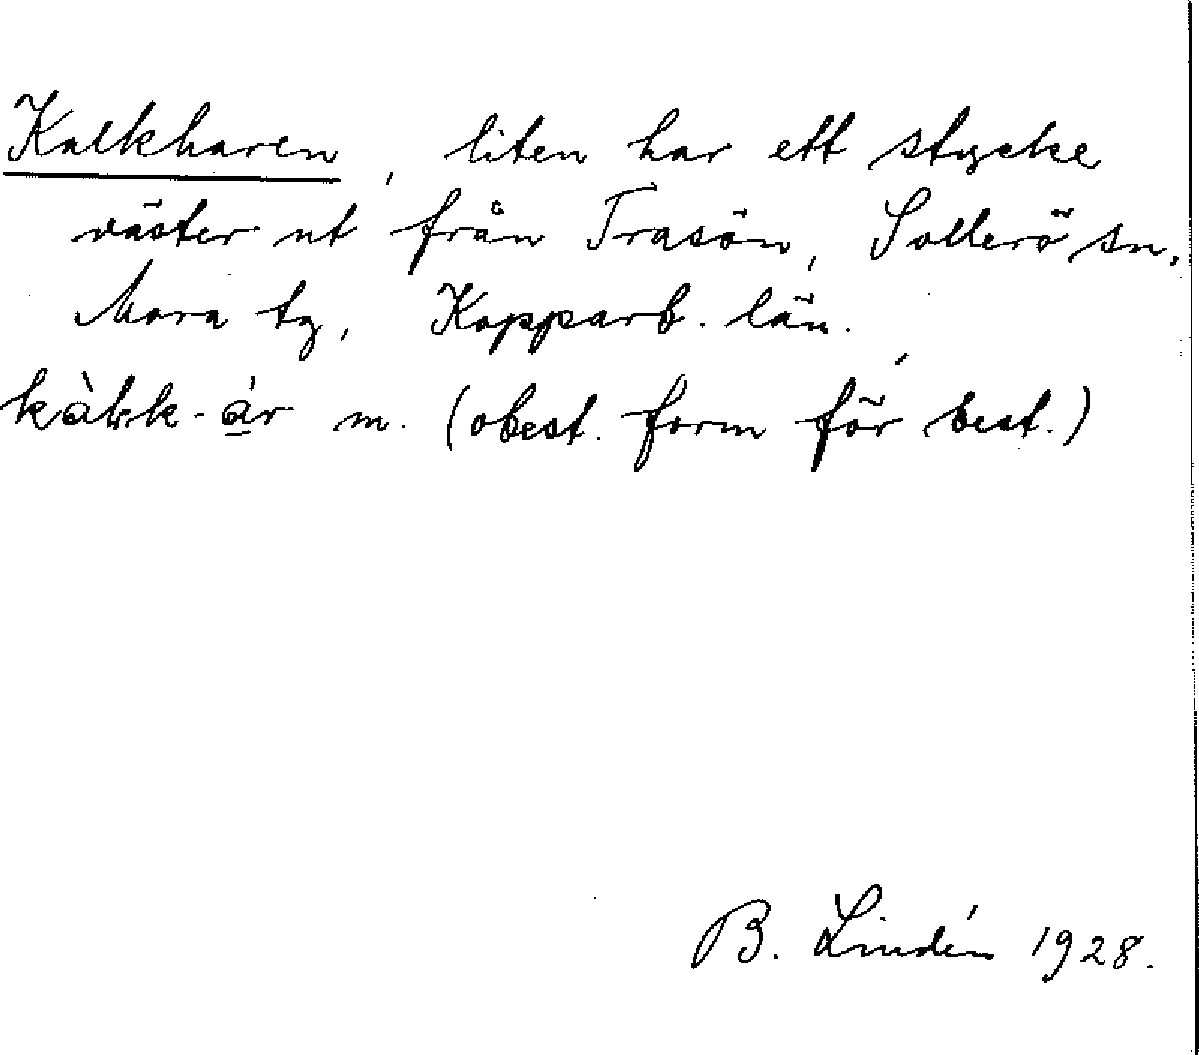 Kalkharen, liten har ett stycke
väster ut från Trasön, Sollerö sn,
Mora tg, Kopparb. län.
m. (obest. form för best.)
B. Lindén 1928.